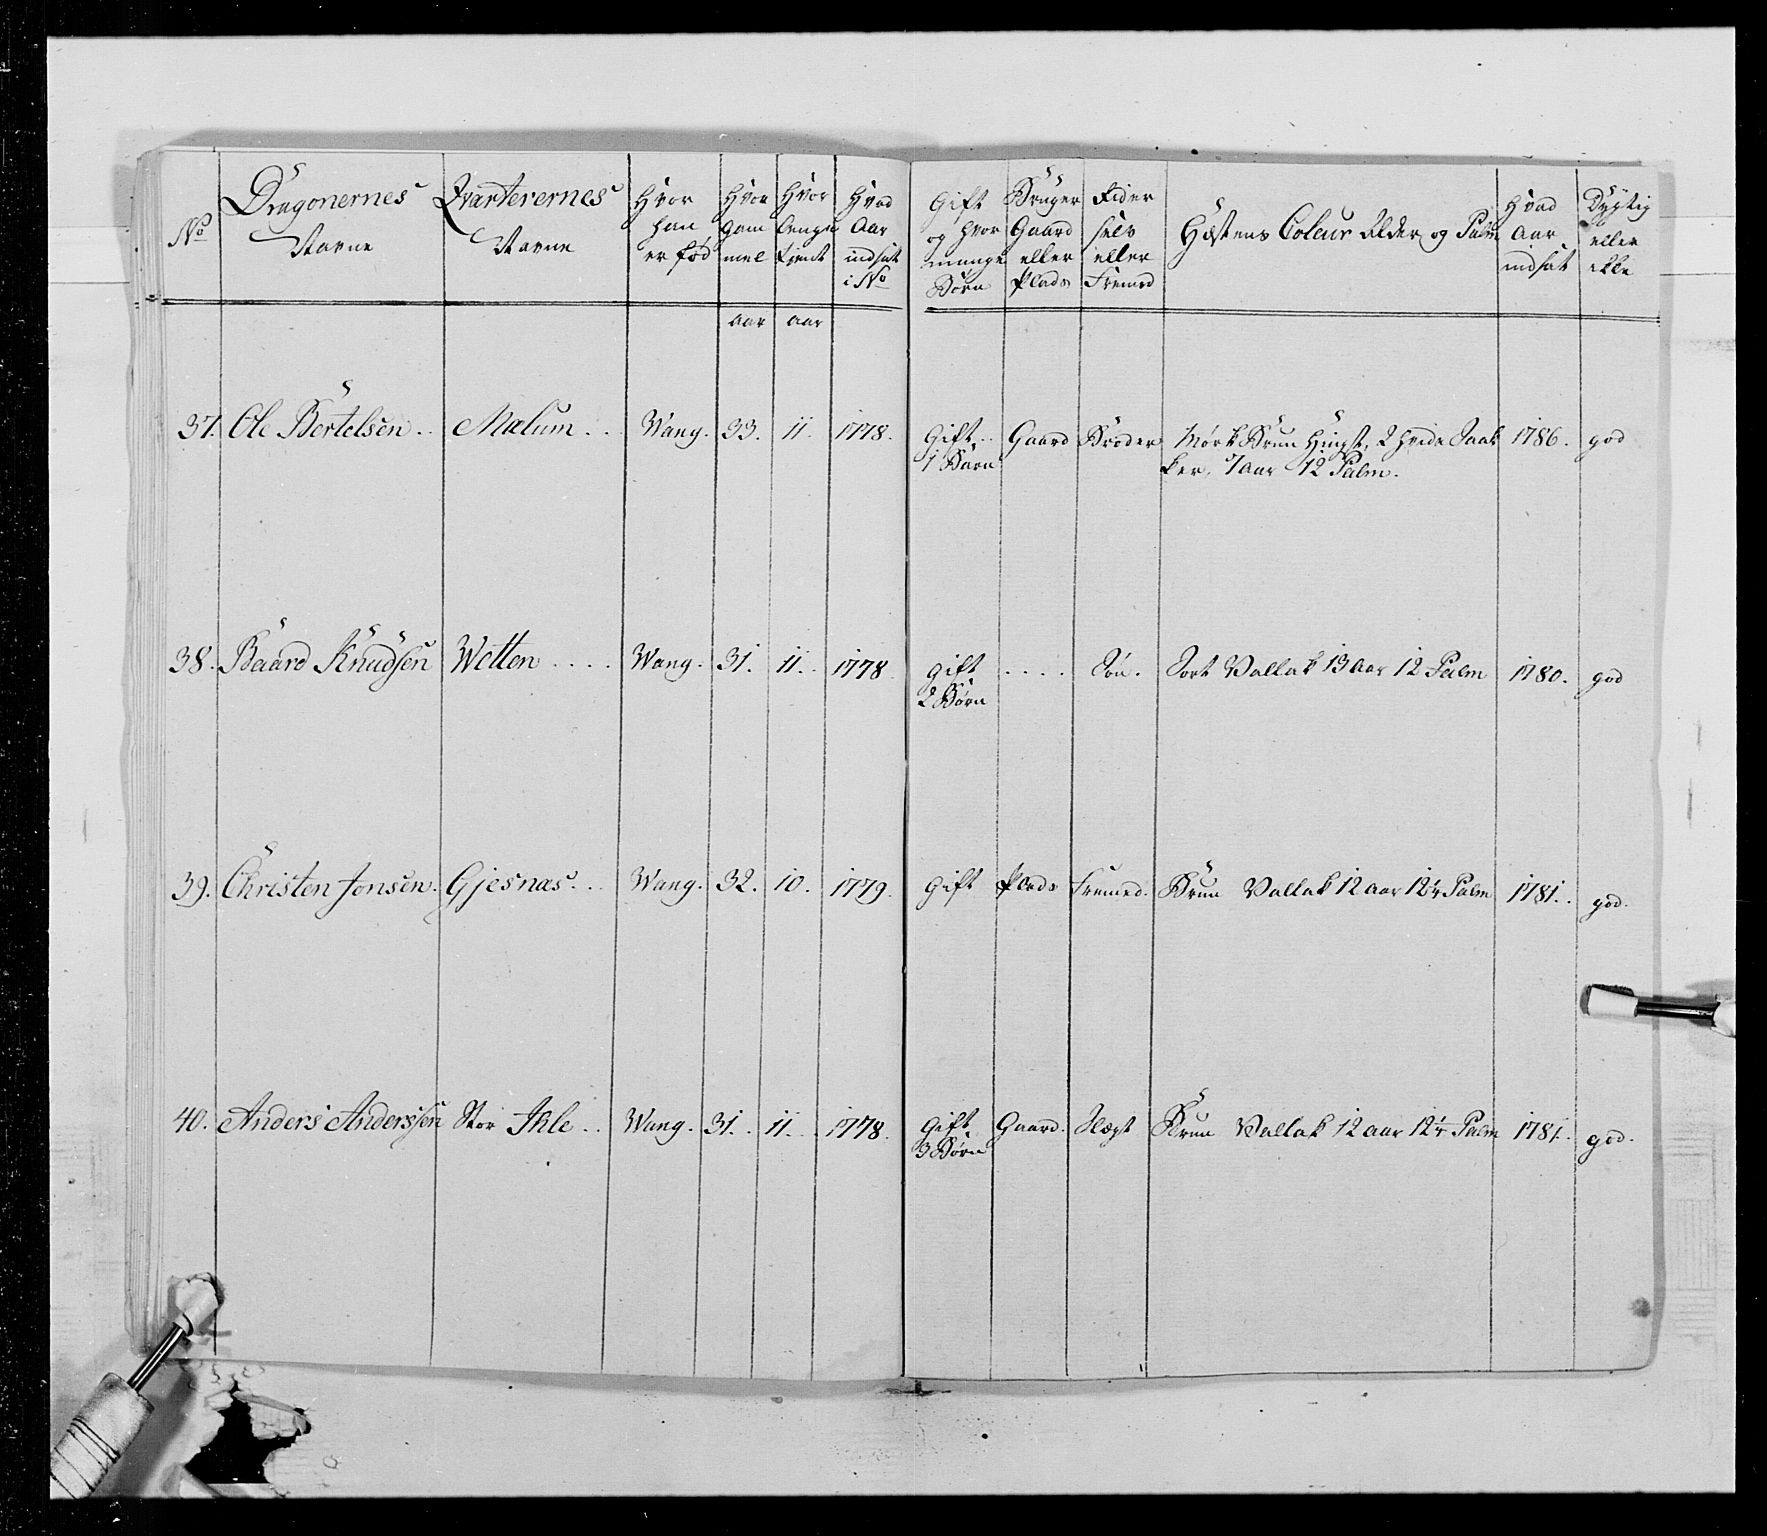 No
Dragonernes Navne
Qvarterernes Navne
Hvor han er fød
Hvor gammel
Hvor lenge tient
Hvad Aar indsat i No
Gift og hvor mange Børn
Bruger Gaard eller Plads
Rider selv eller Fremed
Hæstens Coleur Alder og Palm
Hvad Aar indsat
Dygtig eller ikke
aar aar
37. Ole Bertelsen .. Mælum .. Wang. 33. 11. 1778. Gift .. Gaard Broder Mørk Brun Hingst, 2 hvide Saak 1786. god
1 Barn ker, 7 aar 12 Palm.
38. Baard Knudsen Wetten .... Wang. 31. 11. 1778 Gift .... Søn. Sort Vallak 13 aar 12 Palm 1780. god
2 Børn
39. Christen Jonsen. Gjesnæs .. Wang. 32. 10. 1779. Gift Plads Fremed. Brun Vallak 12 aar 12¼ Palm 1781. god.
40. Anders Anderssen Stor Ihle .. Wang. 31. 11. 1778. Gift Gaard. Slægt Brun Vallak 12 aar 12¼ Palm 1781. god.
3 Børn